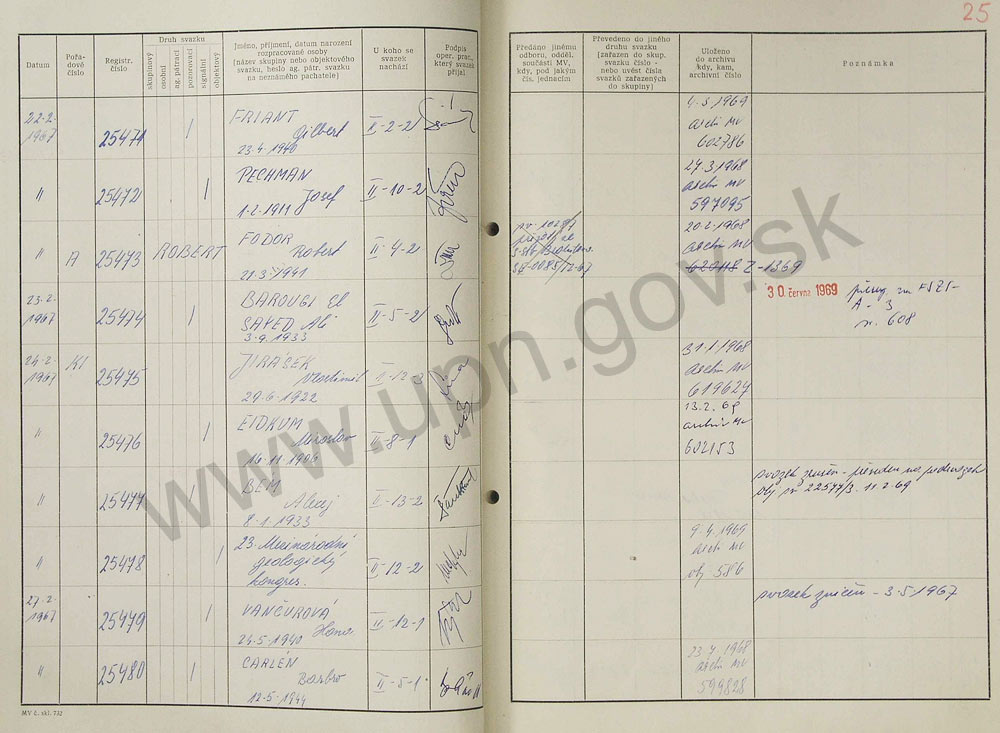 25
Datum
Pořa-
dové
číslo
Registr.
číslo
Druh svazku
skupinový
osobní
ag. pátrací
pozorovací
signální
objektový
Jméno, příjmení, datum narození
rozpracované osoby
(název skupiny nebo objektového
svazku, heslo ag. pátr. svazku
na neznámého pachatele)
U koho se
svazek
nachází
Podpis
oper. prac.,
který svazek
přijal
Předáno jinému
odboru, odděl.
součásti MV,
kdy, pod jakým
čís. jednacím
Převedeno do jiného
druhu svazku
(zařazen do skup.
svazku číslo -
nebo uvést čísla
svazků zařazených
do skupiny)
Uloženo
do archivu
kdy, kam,
archivní číslo
Poznámka
22.2.
1967
25471
FRIANT
Gilbert
23.4.1940
II-2-2
4.3.1969
Arch MV
602786
"
25472
PECHMAN
Josef
1.2.1911
II-10-2
27.3.1968
Arch MV
597095
"
A
25473
ROBERT
FODOR
Robert
21.3.1941
II-4-2
20.2.1968
Arch MV
620118 Z-1369
23.2.
1967
25474
BAROUGI El
SAYED Ali
3.9.1933
II-5-2
30. června 1969
A-3
608
24.2.
1967
KI
25475
JIRÁSEK
Vlastimil
29.6.1922
31.1.1968
Arch MV
619627
"
25476
EIDKUM
Miroslav
16.11.1906
II-8-1
13.2.69
archiv MV
602153
"
25477
BEM
8.1.1933
II-13-2
svazek zničen -
"
25478
23. Mezinárodní
geologický
kongres.
II-12-2
9.4.1969
Arch MV
obj 586
27.2.
1967
25479
VANČUROVÁ
24.5.1940 Hana
II-12-1
svazek zničen - 3.5.1967
"
25480
CARLÉN
Barbro
12.5.1944
II-5-1
23.7.1968
Arch MV
599828
MV č. skl. 732
www.upn.gov.sk